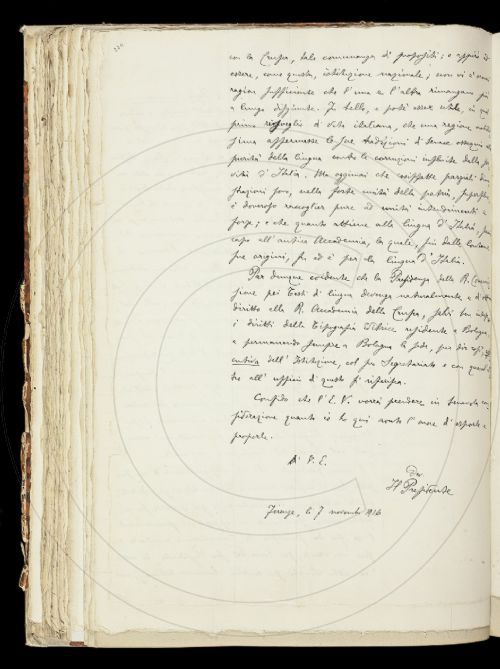 con la Crusca, tale comunanza di propositi; e appare di
essere, come questa, istituzione nazionale; non vi è
ragion sufficiente che l'una e l'altra rimangano più
a lungo disgiunte. Fu bello, e poté esser utile, in quel
primo risveglio di vita italiana, che una regione
affermasse le sue tradizioni di
purità della lingua contro le corruzioni
d'Italia. Ma oggimai che siffatte parziali
sono, nella forte unità della patria,
è doveroso raccoglier pure ad unità intendimenti e
forze; e che quanto attiene alla lingua d'Italia,
capo all'antica Accademia, la quale, fin dalle lontane
sue origini, fu ed è per la lingua d'Italia.
Par dunque evidente che la Presidenza della R. Commis
sione pei Testi di lingua divenga naturalmente e di
diritto alla R. Accademia della Crusca, salvi
i diritti della Tipografia Editrice residente a Bologna,
e permanendo sempre a Bologna la sede,
dell'Istituzione, col suo Segretariato e con quant'
tro all'ufficio di questo si riferisca.
Confido che l'E. V. vorrà prendere in benevola con
siderazione quanto io le qui
proporle.
Di V. E.
Dev.
Il Presidente
Firenze, li 7 novembre 1916